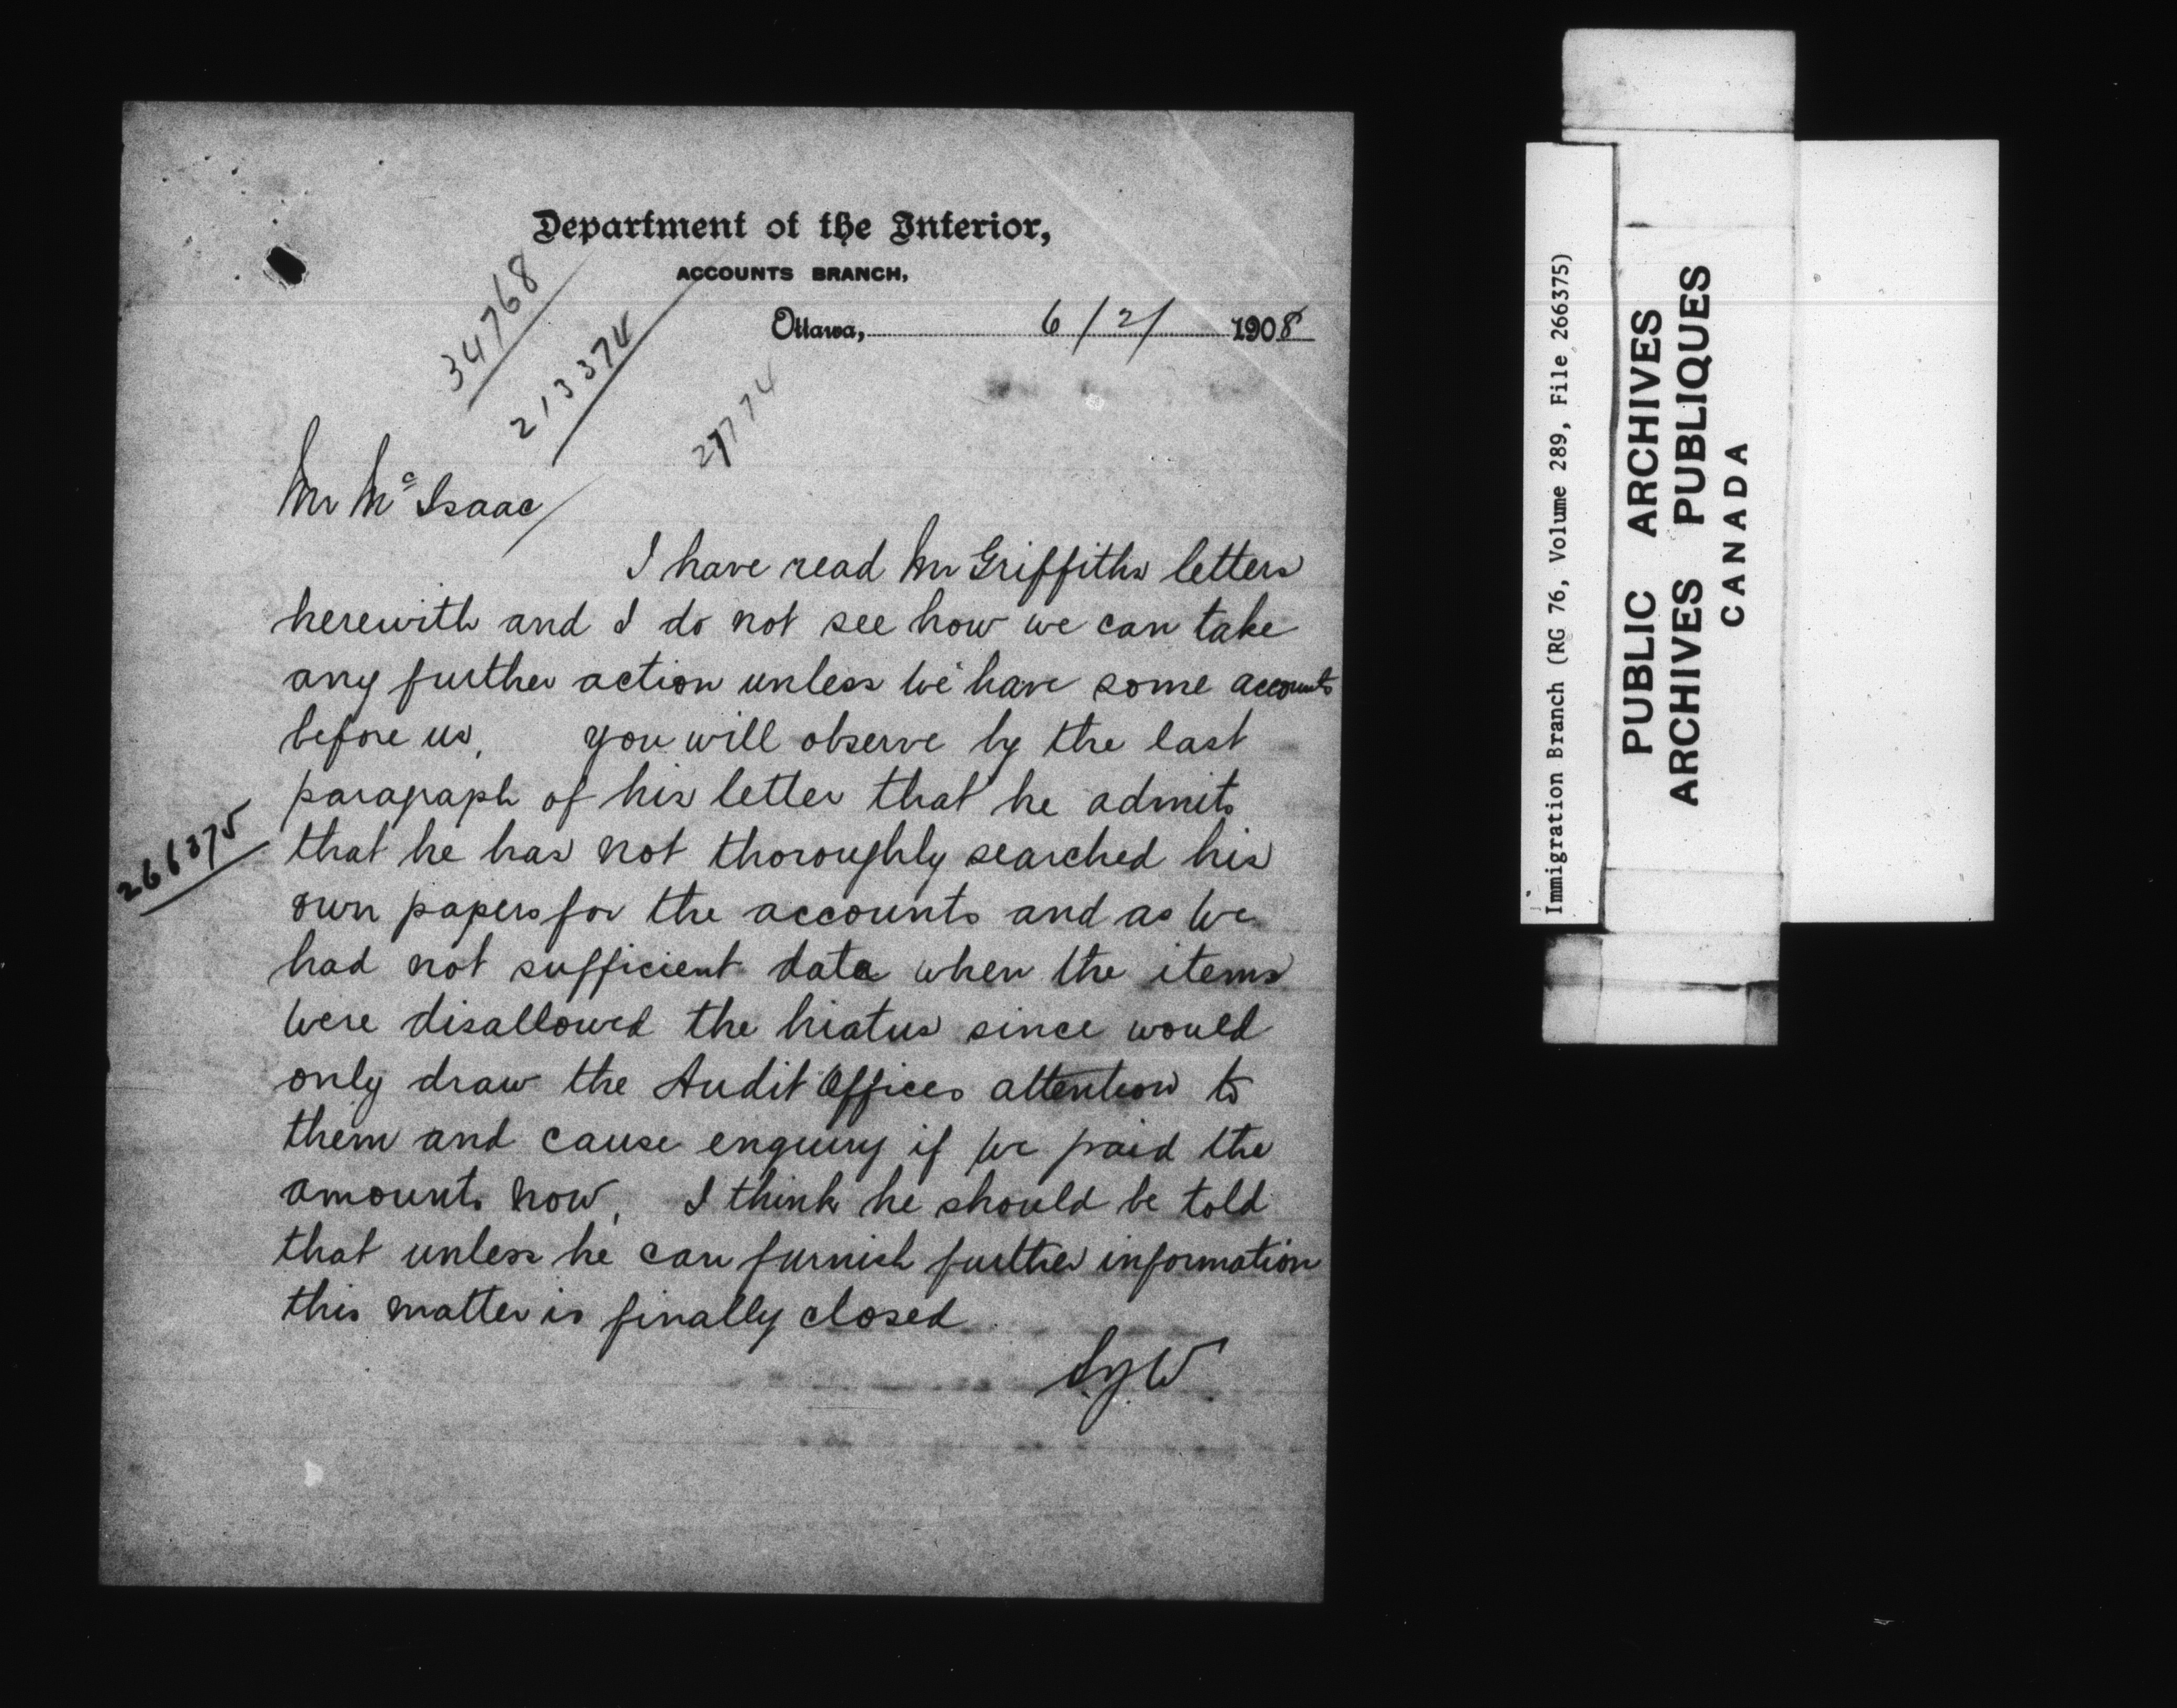 Department of the Interior,
ACCOUNTS BRANCH,
Ottawa, 6/2/ 1908
34768
213374
Mr Mc Isaac
I have read Mr Griffiths letters
herewith and I do not see how we can take
any further action unless we have some accounts
before us. you will observe by the last
paragraph of his letter that he admits
that he has not thoroughly searched his
own papers for the accounts and as we
had not sufficient data when the items
were disallowed the hiatus since would
only draw the Audit Offices attention to
them and cause enquiry if we paid the
amounts now. I think he should be told
that unless he can furnish further information
this matter is finally closed
266375
Immigration Branch (RG 76, Volume 289, File 266375)
PUBLIC ARCHIVES
ARCHIVES PUBLIQUES
CANADA